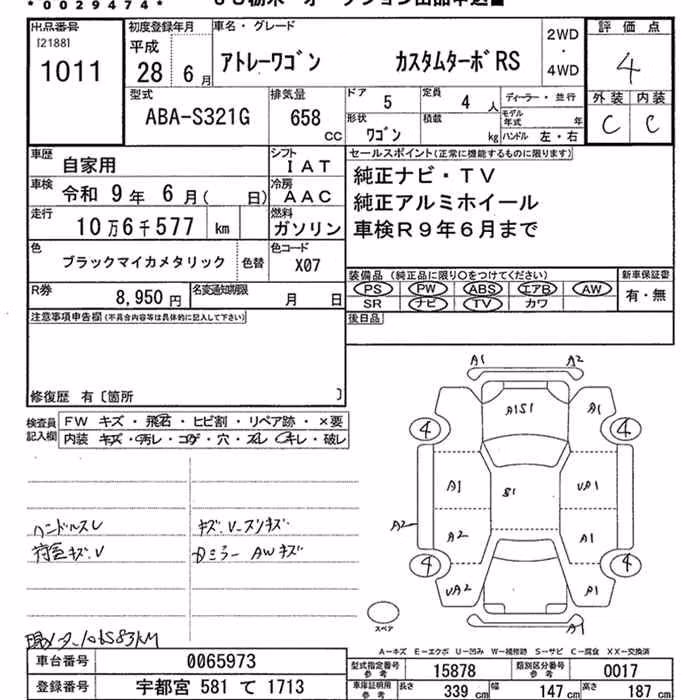 *0029474*
出品番号 [2188] 1011
初度登録年月 平成 28 年 6 月
車名・グレード アトレーワゴン カスタムターボRS
2WD・4WD
評価点 4
外装 C 内装 C
型式 ABA-S321G
排気量 658 CC
ドア 5 定員 4 人
ディーラー・並行
形状 ワゴン 積載 kg
モデル年式 年
ハンドル 左・右
車歴 自家用
シフト IAT
車検 令和 9 年 6 月( 日)
冷房 AAC
走行 10万6千577 km
燃料 ガソリン
色 ブラックマイカメタリック 色替
色コード X07
R券 8,950 円
名変通知期限 月 日
セールスポイント(正常に機能するものに限ります)
純正ナビ・TV
純正アルミホイール
車検R9年6月まで
装備品 (純正品に限り○をつけてください)
PS PW ABS エアB AW
SR ナビ TV カワ
新車保証書 有・無
後日品
注意事項申告欄(不具合内容等は具体的に記入して下さい)
修復歴 有〔箇所 〕
検査員記入欄
FW キズ・飛石・ヒビ割・リペア跡・×要
内装 キズ・汚レ・コゲ・穴・スレ・キレ・破レ
ハンドルスレ
キズ.V-スリキズ
AWキズ
A1 A2
A1S1 A1
4 4
A1 S1 UA1
A2 A2 A1
4 4
UA2 A1
A1
スペア
A-キズ E-エクボ U-凹み W-補修跡 S-サビ C-腐食 XX-交換済
車台番号 0065973
登録番号 宇都宮 581 て 1713
型式指定番号参考 15878
類別区分番号参考 0017
車庫証明用参考 長さ 339 cm 幅 147 cm 高さ 187 cm